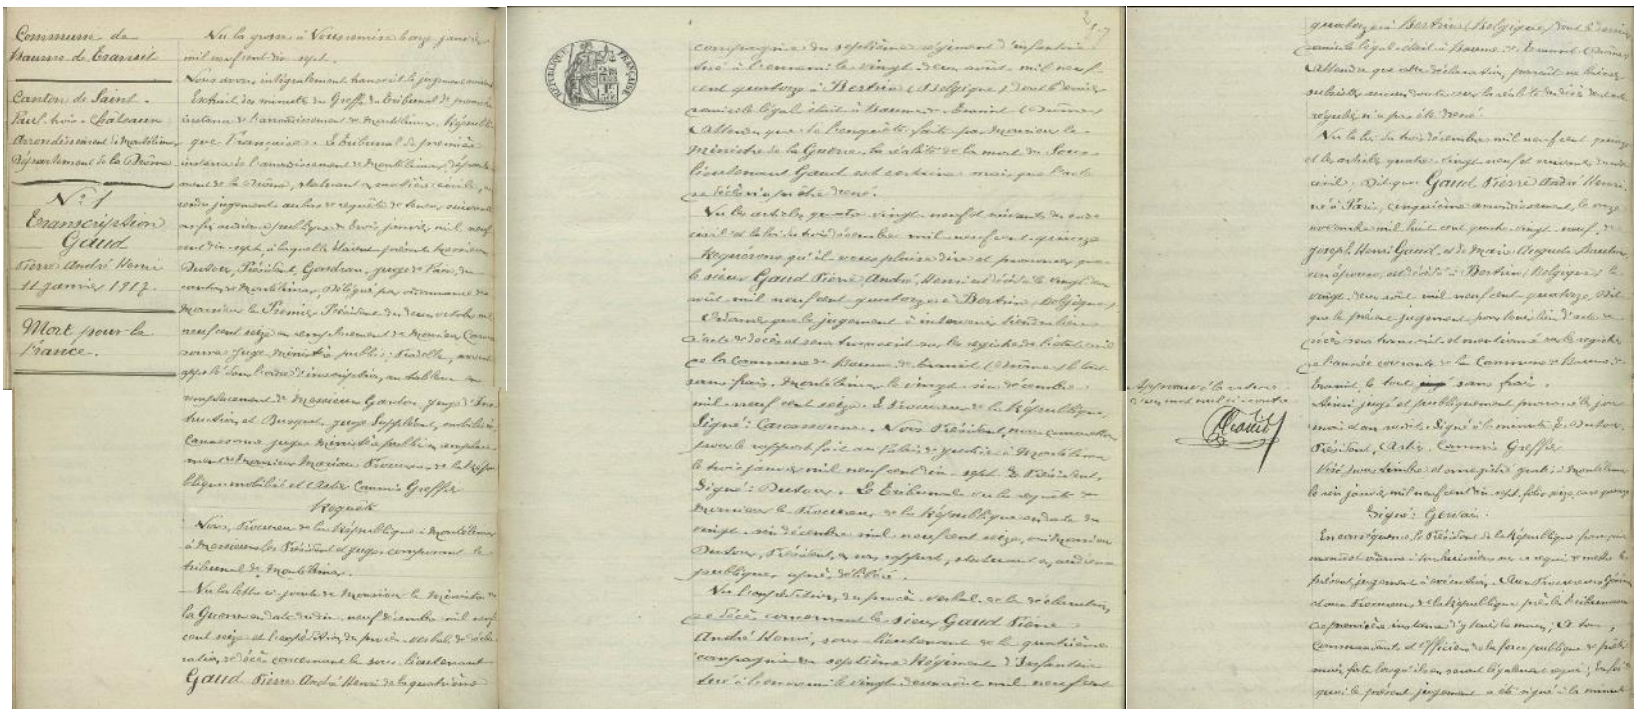 Commune de
Baume de Transit
Canton de Saint-
Paul-trois-Châteaux
Arrondissement de Montélimar
Département de la Drôme
N° 1
Transcription
Gaud
Pierre André Henri
11 janvier 1917.
Mort pour la
France.
Vu la grosse à Nous remise le onze janvier
mil neuf cent dix-sept.
Nous avons intégralement transcrit le jugement
Extrait des minutes du Greffe du Tribunal de première
instance de l'arrondissement de Montélimar. Républi-
que Française. Le Tribunal de première
instance de l'arrondissement de Montélimar, départe-
ment de la Drôme, statuant en matière civile, a
rendu jugement au bas de requête de teneur suivante
en son audience publique du trois janvier mil neuf
cent dix-sept, à laquelle étaient présents Messieurs
Dutour, Président, Gondran, juge de Paix du
canton de Montélimar, délégué par ordonnance de
Monsieur le Premier Président du deux octobre mil
neuf cent seize en remplacement de Monsieur
juge, ministère public
appelé dans l'ordre d'inscription au tableau en
remplacement de Messieurs Gardon juge d'Ins-
truction et juge Suppléant, mobilisés
Carcassonne juge Ministère public en remplace-
ment de Monsieur Procureur de la Répu-
blique mobilisé et Artis Commis Greffier
Requête
Nous, Procureur de la République à Montélimar
à Messieurs les Président et juges composant le
tribunal de Montélimar.
Vu la lettre ci-jointe de Monsieur le Ministre de
la Guerre en date du dix-neuf décembre mil neuf
cent seize et l'expédition du procès-verbal de décla-
ration de décès concernant le sous-lieutenant
Gaud Pierre André Henri de la quatrième
RÉPUBLIQUE FRANÇAISE
compagnie du septième régiment d'infanterie
tué à l'ennemi le vingt-deux août mil neuf
cent quatorze à Bertrix (Belgique) dont le dernier
domicile légal était à Baume-de-Transit (Drôme)
Attendu que de l'enquête faite par Monsieur le
Ministre de la Guerre, la réalité de la mort du Sous-
lieutenant Gaud est certaine mais que l'acte
de décès n'a pu être dressé.
Vu les articles quatre-vingt-neuf et suivants du code
civil et la loi du trois décembre mil neuf cent quinze
Requérons qu'il vous plaise dire et prononcer que
le sieur Gaud Pierre André, Henri est décédé le vingt-deux
août mil neuf cent quatorze à Bertrix (Belgique)
Ordonner que le jugement à intervenir tiendra lieu
d'acte de décès et sera transcrit sur les registres de l'état civil
de la Commune de Baume de Transit (Drôme) le tout
sans frais. Montélimar le vingt-six décembre
mil neuf cent seize. Le Procureur de la République,
Signé: Carcassonne. Nous Président, nous commettons
pour le rapport fait au Palais de justice à Montélimar
le trois janvier mil neuf cent dix-sept. Le Président,
Signé: Dutour. Le Tribunal vu la requête de
Monsieur le Procureur de la République en date du
vingt-six décembre mil neuf cent seize, ouï Monsieur
Dutour, Président, en son rapport, statuant en audience
publique, après délibéré.
Vu l'expédition du procès-verbal de la déclaration
de décès concernant le sieur Gaud Pierre
André Henri, sous-lieutenant de la quatrième
compagnie du septième Régiment d'Infanterie
tué à l'ennemi le vingt-deux août mil neuf cent
quatorze à Bertrix (Belgique) dont le dernier
domicile légal était à Baume-de-Transit (Drôme)
Attendu que cette déclaration paraît ne laisser
subsister aucun doute sur la réalité du décès dont acte
régulier n'a pas été dressé.
Vu la loi du trois décembre mil neuf cent quinze
et les articles quatre-vingt-neuf et suivants du code
civil; Dit que Gaud Pierre André Henri
né à Paris, cinquième arrondissement, le onze
novembre mil huit cent quatre-vingt-neuf, de
Joseph Henri Gaud, et de Marie Auguste
son épouse, est décédé à Bertrix (Belgique) le
vingt-deux août mil neuf cent quatorze, Dit
que le présent jugement pour tenir lieu d'acte de
décès sera transcrit et mentionné sur les registres
de l'année courante de la Commune de Baume de
Transit le tout sans frais.
Ainsi jugé et publiquement prononcé les jour
mois et an susdits. Signé à la minute: E. Dutour
Président, Artis, Commis Greffier
Visé pour timbre et enregistré gratis à Montélimar
le six janvier mil neuf cent dix-sept, folio seize, case quinze
Signé: Gervais.
En conséquence, le Président de la République française
mande et ordonne à tous huissiers sur ce requis de mettre le
présent jugement à exécution. Aux Procureurs Généraux
et aux Procureurs de la République près les tribunaux
de première instance d'y tenir la main; A tous
Commandants et Officiers de la force publique de prêter
main-forte lorsqu'ils en seront légalement requis; En foi de
quoi le présent jugement a été signé à la minute
Approuvé la rature
d'un mot nul ci-contre